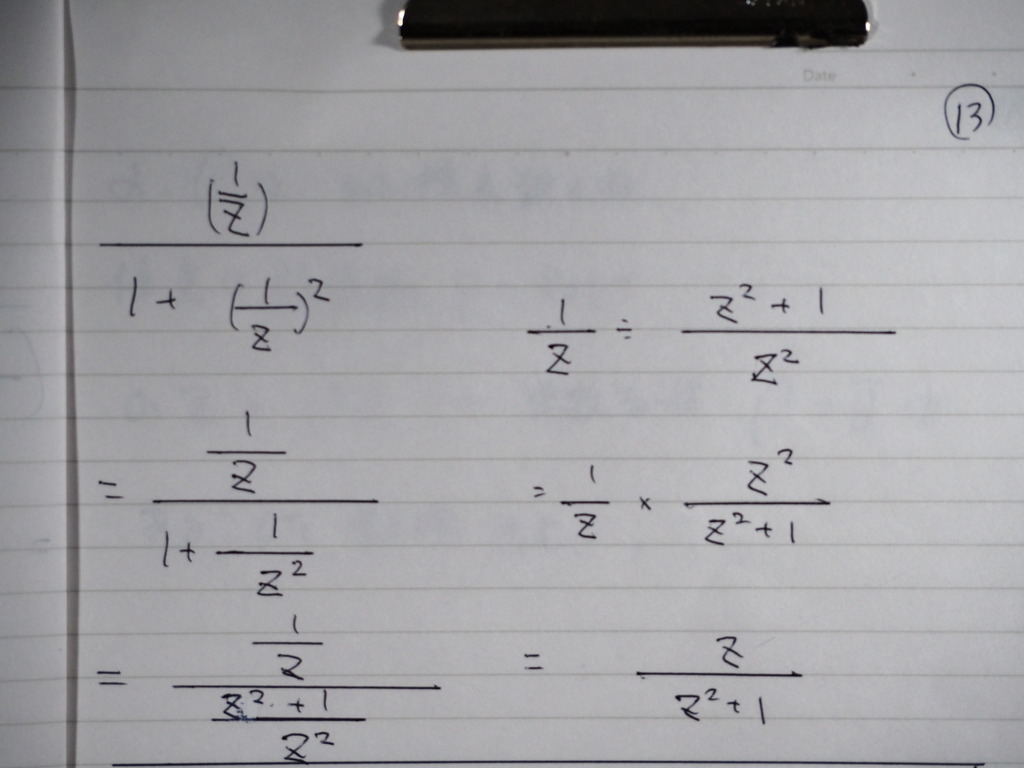 Date
13
(1/z)
1 + (1/z)²
= 1/z
1 + 1/z²
= 1/z
z² + 1
z²
1/z ÷ (z² + 1)/z²
= 1/z × z²/(z² + 1)
= z/(z² + 1)